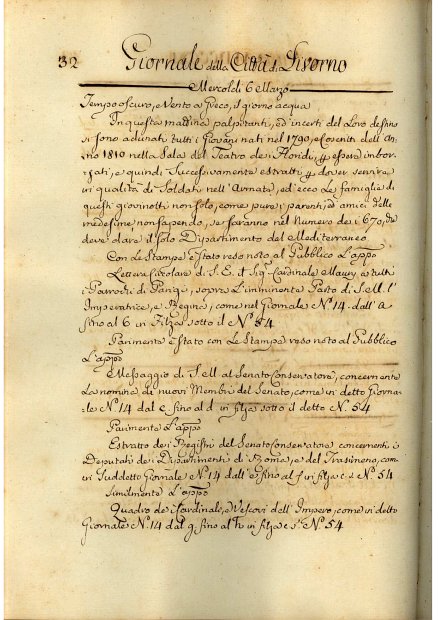 32 Giornale della Città di Livorno
Mercoldi 6 Marzo
Tempo oscuro, e Vento a Greco, il giorno acqua
In questa mattina palpitanti, ed incerti del Loro destino
si sono adunati tutti i Giovani nati nel 1790, e Coscritti dell' An:
no 1810 nella Sala del Teatro dei Floridi, p essere imbor:
sati, e quindi Successivamente estratti p dover servire
in qualità di Soldati nell' Armata, ed ecco Le famiglie di
questi giovinotti non solo, come pure i parenti, ed amici delle
medesime non sapendo, se saranno nel Numero dei 670, che
deve dare il solo Dipartimento del Mediterraneo
Con Le Stampe è stato reso noto al Pubblico L'appo
Lettera Circolare di S. E. il Sigr Cardinale Maury a tutti
i Parrochi di Parigi, sopra L'imminente Parto di S. M. l'
Imperatrice, e Regina, come nel Giornale N° 14. dall' a
fino al b in Filza sotto il N° 54
Parimente è stato con Le Stampe reso noto al Pubblico
L'appo
Messaggio di S. M. al Senato Conservatore, concernente
La nomina di nuovi Membri del Senato, come in detto Giorna:
le N° 14 dal c fino al d in filza sotto il detto N. 54
Parimente L'appo
Estratto dei Registri del Senato Conservatore concernenti i
Deputati dei Dipartimenti di Rome, e del Trasimeno, com
in Suddetto Giornale N° 14 dall' e fino al f in filza N° 54
Similmente L'appo
Quadro dei Cardinali, e Vescovi dell' Impero, come in detto
Giornale N° 14 dal g fino al h in filza N° 54.